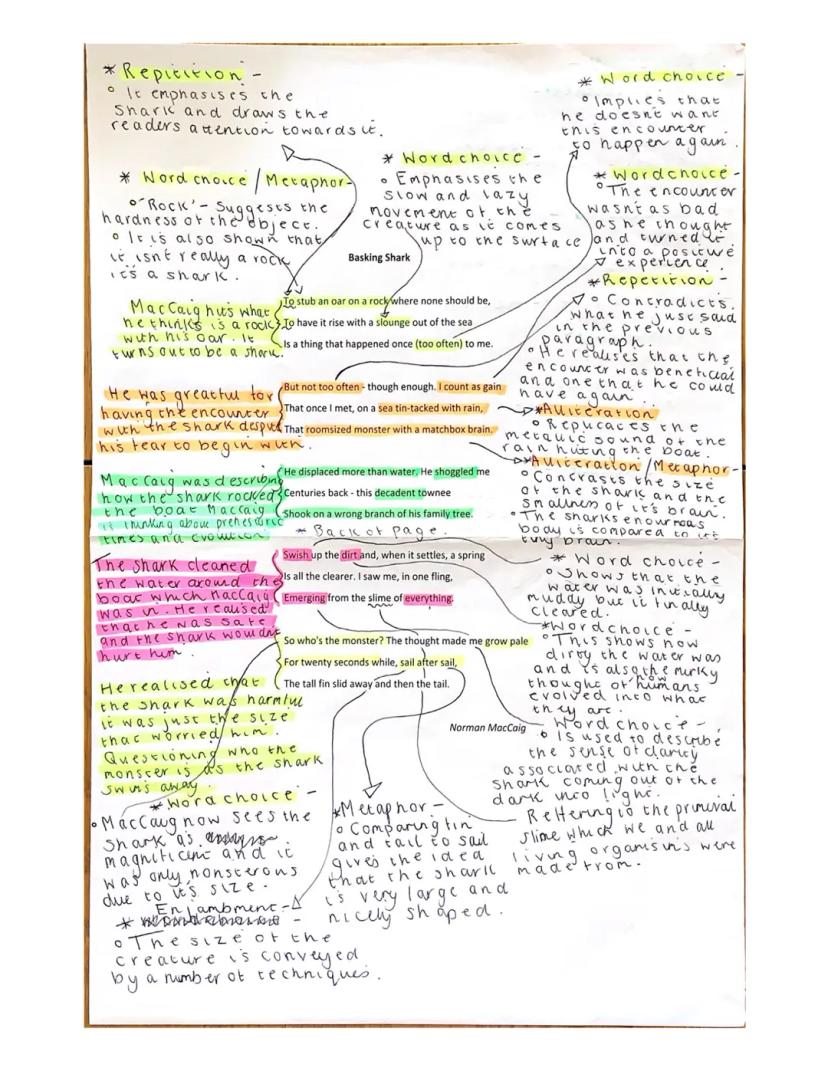 * Repitition -
° It emphasises the
shark and draws the
readers attention towards it.
* Word choice / Metaphor -
° 'Rock' - Suggests the
hardness of the object.
° It is also shown that
it isn't really a rock
it's a shark.
* Word choice -
° Emphasises the
slow and lazy
movement of the
creature as it comes
up to the surface
* Word choice -
° Implies that
he doesnt want
this encounter
to happen again.
* Word choice -
° The encounter
wasnt as bad
as he thought
and turned it
into a positive
experience.
* Repetition -
° Contradicts
what he just said
in the previous
paragraph.
° He realises that the
encounter was beneficial
and one that he could
have again.
* Alliteration
° Replicates the
metallic sound of the
rain hitting the boat.
* Alliteration / Metaphor -
° Contrasts the size
of the shark and the
smallness of it's brain.
° The sharks enourmous
body is compared to it's
tiny brain.
Basking Shark
To stub an oar on a rock where none should be,
To have it rise with a slounge out of the sea
Is a thing that happened once (too often) to me.
But not too often - though enough. I count as gain
That once I met, on a sea tin-tacked with rain,
That roomsized monster with a matchbox brain.
He displaced more than water. He shoggled me
Centuries back - this decadent townee
Shook on a wrong branch of his family tree.
* Back of page.
Swish up the dirt and, when it settles, a spring
Is all the clearer. I saw me, in one fling,
Emerging from the slime of everything.
So who's the monster? The thought made me grow pale
For twenty seconds while, sail after sail,
The tall fin slid away and then the tail.
Norman MacCaig
MacCaig hits what
he thinks is a rock
with his oar. It
turns out to be a shark.
He was greatful for
having the encounter
with the shark despite
his fear to begin with.
MacCaig was describing
how the shark rocked
the boat MacCaig
is thinking about prehestoric
times and evolution
The shark cleaned
the water around the
boat which MacCaig
was in. He realised
that he was safe
and the shark wouldnt
hurt him.
He realised that
the shark was harmful
it was just the size
that worried him.
Questioning who the
monster is as the shark
swims away.
* Word choice -
° Shows that the
water was initially
muddy but it finally
cleared.
* Word choice -
° This shows how
dirty the water was
and is also the murky
thought of how humans
evolved into what
they are.
Word choice -
° Is used to describe
the sense of clarity
associated with the
shark coming out of the
dark into light.
Reffering to the primival
slime which we and all
living organisms were
made from.
* Word choice -
° MacCaig now sees the
shark as
magnificint and it
was only monsterous
due to it's size.
* Metaphor -
° Comparing fin
and tail to sail
gives the idea
that the shark
is very large and
nicely shaped.
* Enjambment -
° The size of the
creature is conveyed
by a number of techniques.